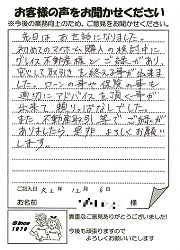 お客様の声をお聞かせください
※今後の業務向上のため、ご意見をお聞かせください。
先日は お世話になりました。
初めてのマイホーム購入の検討中に
グレイス不動産様と ご縁があり、
安心して取引を終える事が出来ま
した。ローンの事や保険の事も
適切にアドバイスを頂く事が
出来て頼りっぱなしでした。
また、不動産取引等で ご縁が
ありましたら、是非よろしくお願い
します。
ご記入日 R2年 12月 6日
お名前
Since
1979
貴重なご意見ありがとうございました!
今後も頑張りますので
よろしくお願いいたします